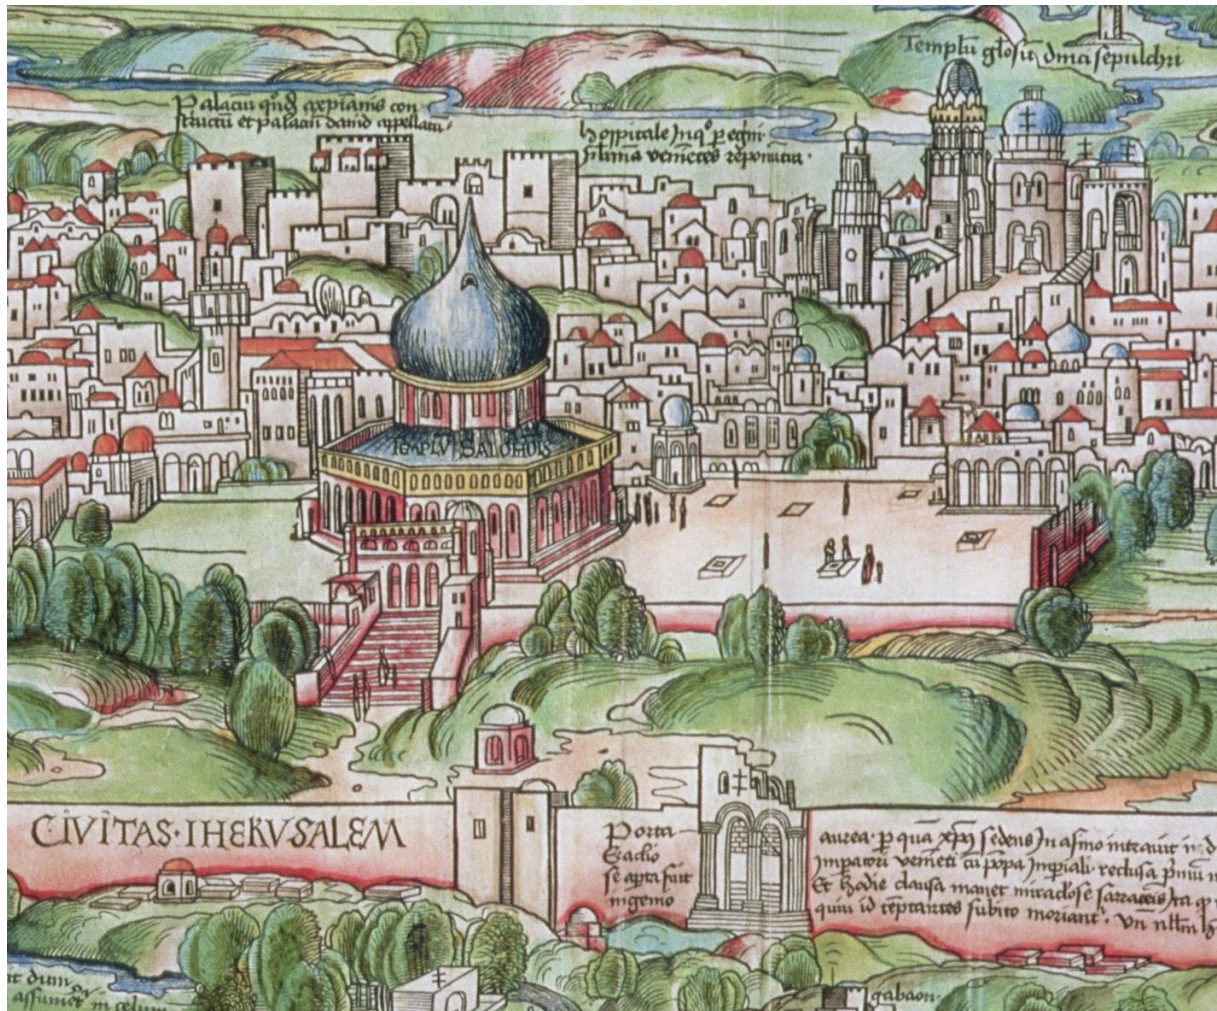 Templu glosu dnici sepulchri
Palaciu qnd axpianis con
structu et palaciu david appellatu
hospitale In q peregrini
venietes reponutur
TEMPLV SALOMOIS
CIVITAS · IHERVSALEM
Porta
se apta fuit
ingenio
aurea · p qua xps sedens In asino intravit
Impatori venieti cu popa Impiali reclusa
Et hodie clausa manet miraclose sarracenis Ita
quin id teptantes subito moriant
dum
assumet in celum
gabaon ·